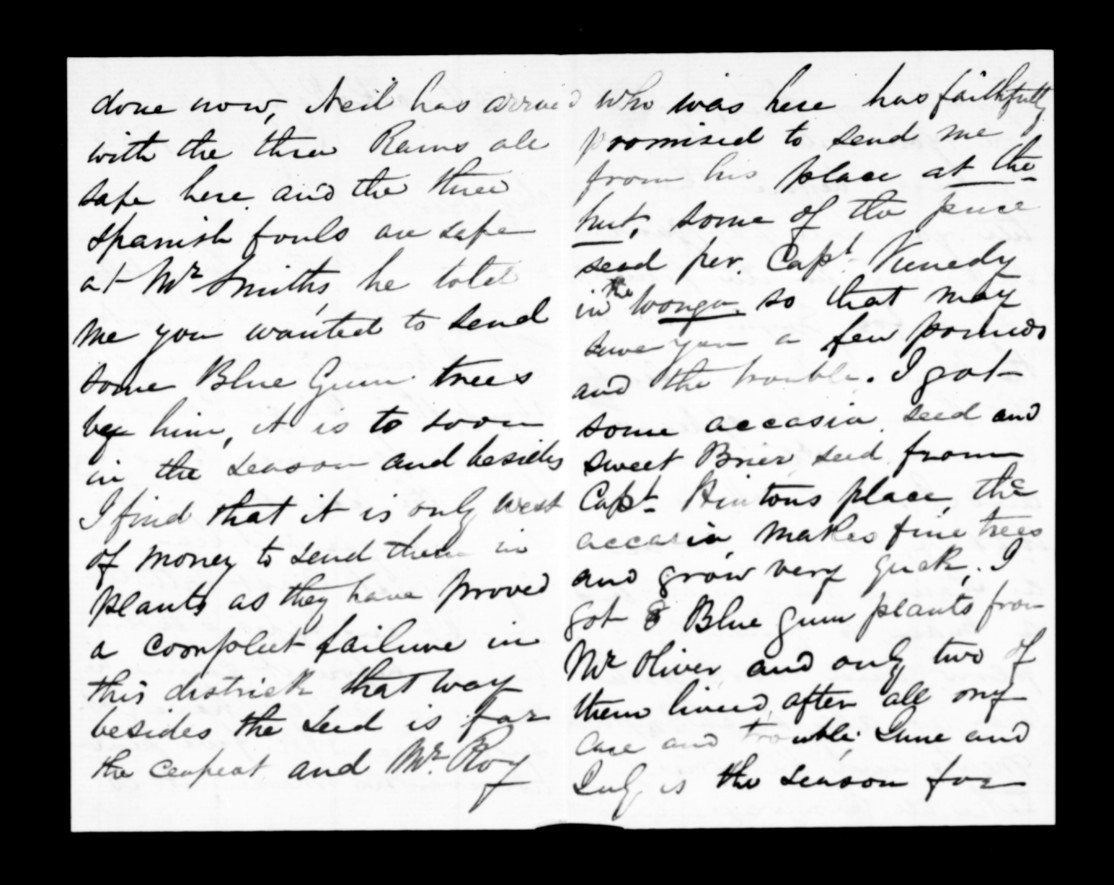 done now, Neil has arrived
with the three Rams all
safe here and the three
spanish fouls are safe
at Mr Smiths, he told
me you wanted to send
some Blue Gum trees
by him, it is to soon
in the season and besides
I find that it is only west
of money to send them in
plants as they have proved
a compleet failure in
this districk that way
besides the seed is far
the ceapest and Mr. Roy
who was here has faithfully
promised to send me
from his place at the
hut, some of the fence
seed per. Capt Kenedy
in the Wonga so that may
save you a few pounds
and the trouble. I got
some accasia seed and
sweet Brier seed from
Capt. Hintons place, the
accasia makes fine trees
and grow very quck, I
got 8 Blue gum plants from
Mr Oliver and only two of
them lived after all my
care and trouble. June and
July is the season for